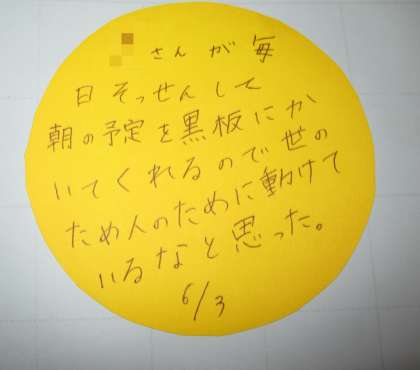 さんが毎
日そっせんして
朝の予定を黒板にか
いてくれるので世の
ため人のために動けて
いるなと思った。
6/3